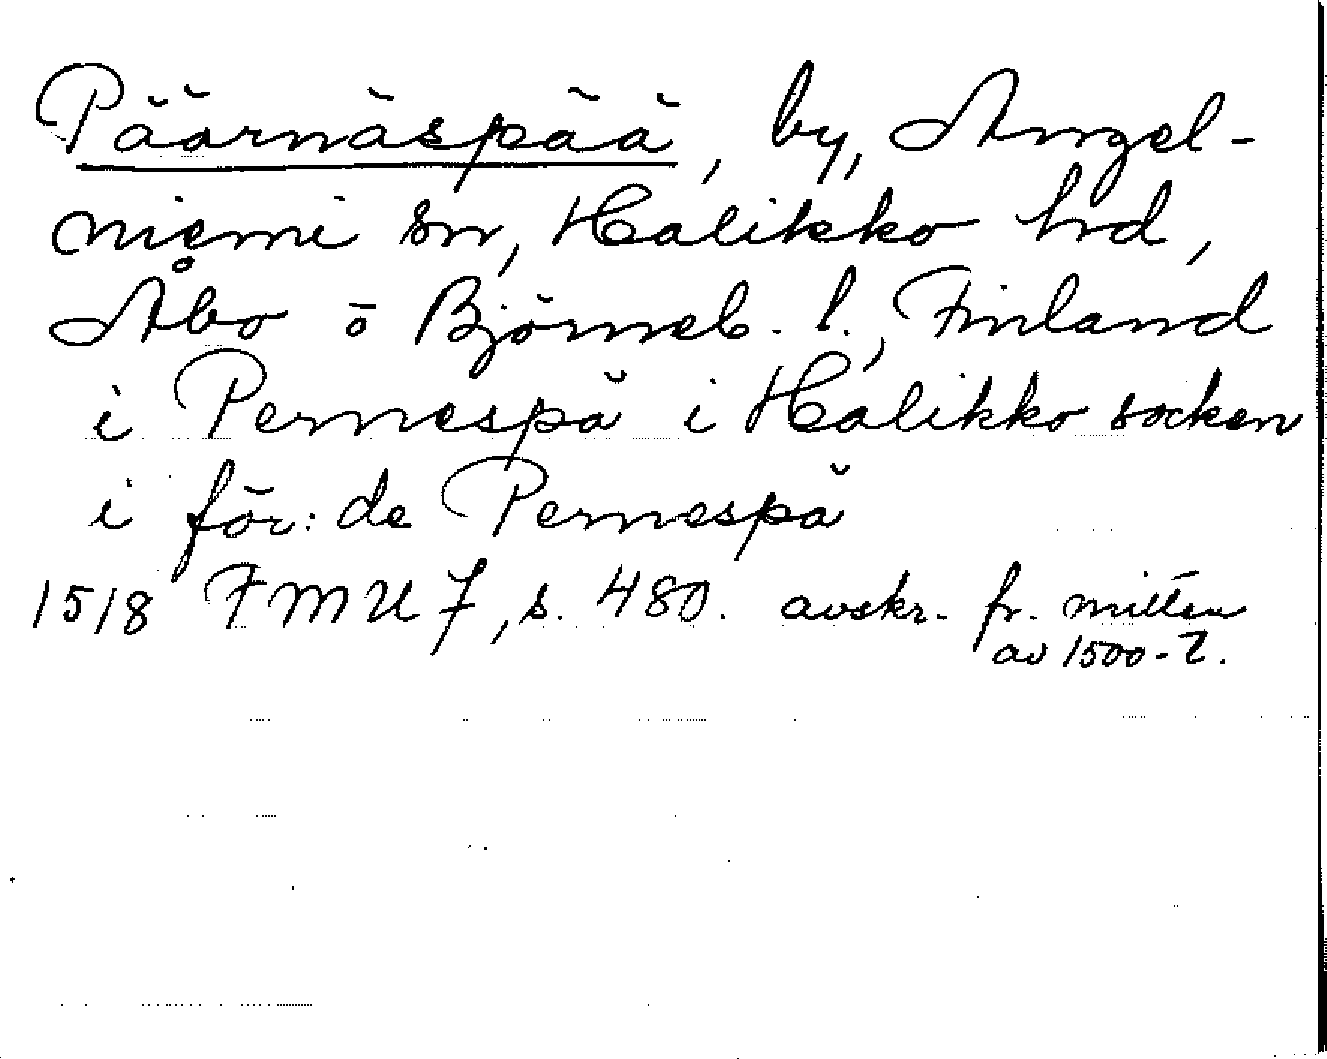 Päärnäspää, by, Angel-
niemi sn, Halikko hrd,
Åbo o Björneb. l., Finland
i Pernespä i Halikko socken
i för: de Pernespä
1518 FMU 7, s. 480. avskr. fr. mitten
av 1500-t.